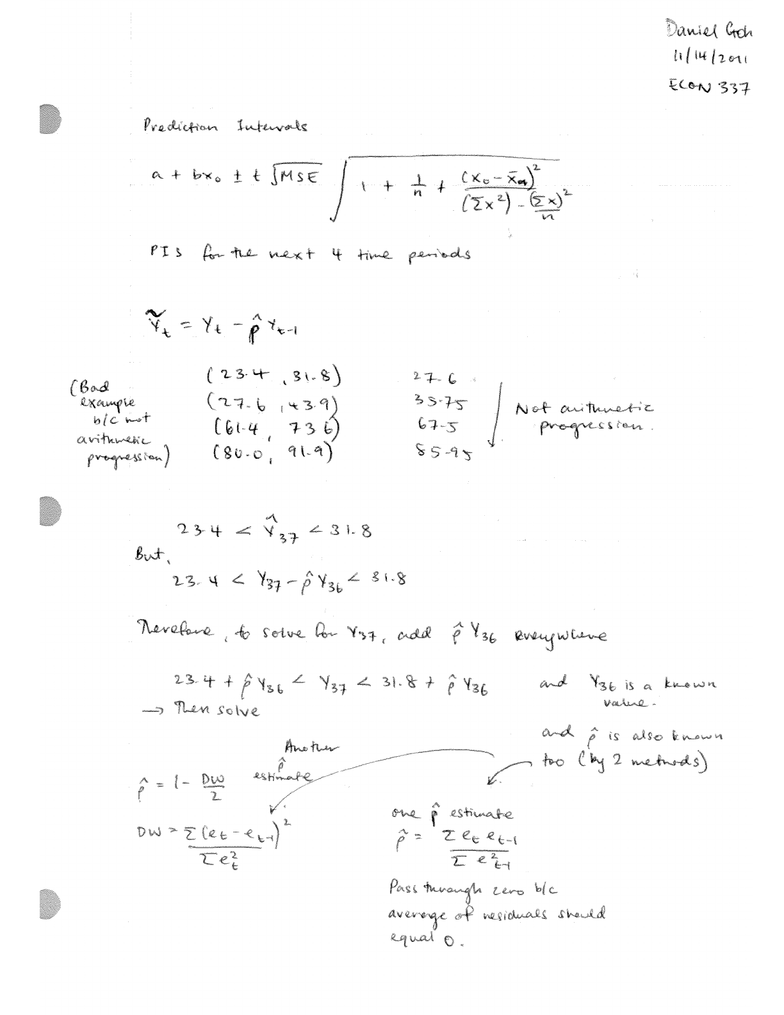 Daniel Goh
11/14/2011
ECON 337
Prediction Intervals
a + bx₀ ± t √MSE √(1 + 1/n + (x₀ - x̄)² / ((Σx²) - (Σx)²/n))
PIs for the next 4 time periods
Ỹt = Yt - ρ̂ Yt-1
(Bad example b/c not arithmetic progression)
(23.4, 31.8) 27.6
(27.6, 43.9) 35.75
(61.4, 73.6) 67.5
(80.0, 91.9) 85.95
Not arithmetic
progression.
23.4 < Ŷ37 < 31.8
But,
23.4 < Y37 - ρ̂ Y36 < 31.8
Therefore, to solve for Y37, add ρ̂ Y36 everywhere
23.4 + ρ̂ Y36 < Y37 < 31.8 + ρ̂ Y36
→ Then solve
and Y36 is a known
value.
and ρ̂ is also known
too (by 2 methods)
Another
ρ̂
estimate
ρ̂ = 1 - DW/2
DW = Σ(et - et-1)² / Σet²
one ρ̂ estimate
ρ̂ = Σ et et-1 / Σ e²t-1
Pass through zero b/c
average of residuals should
equal 0.